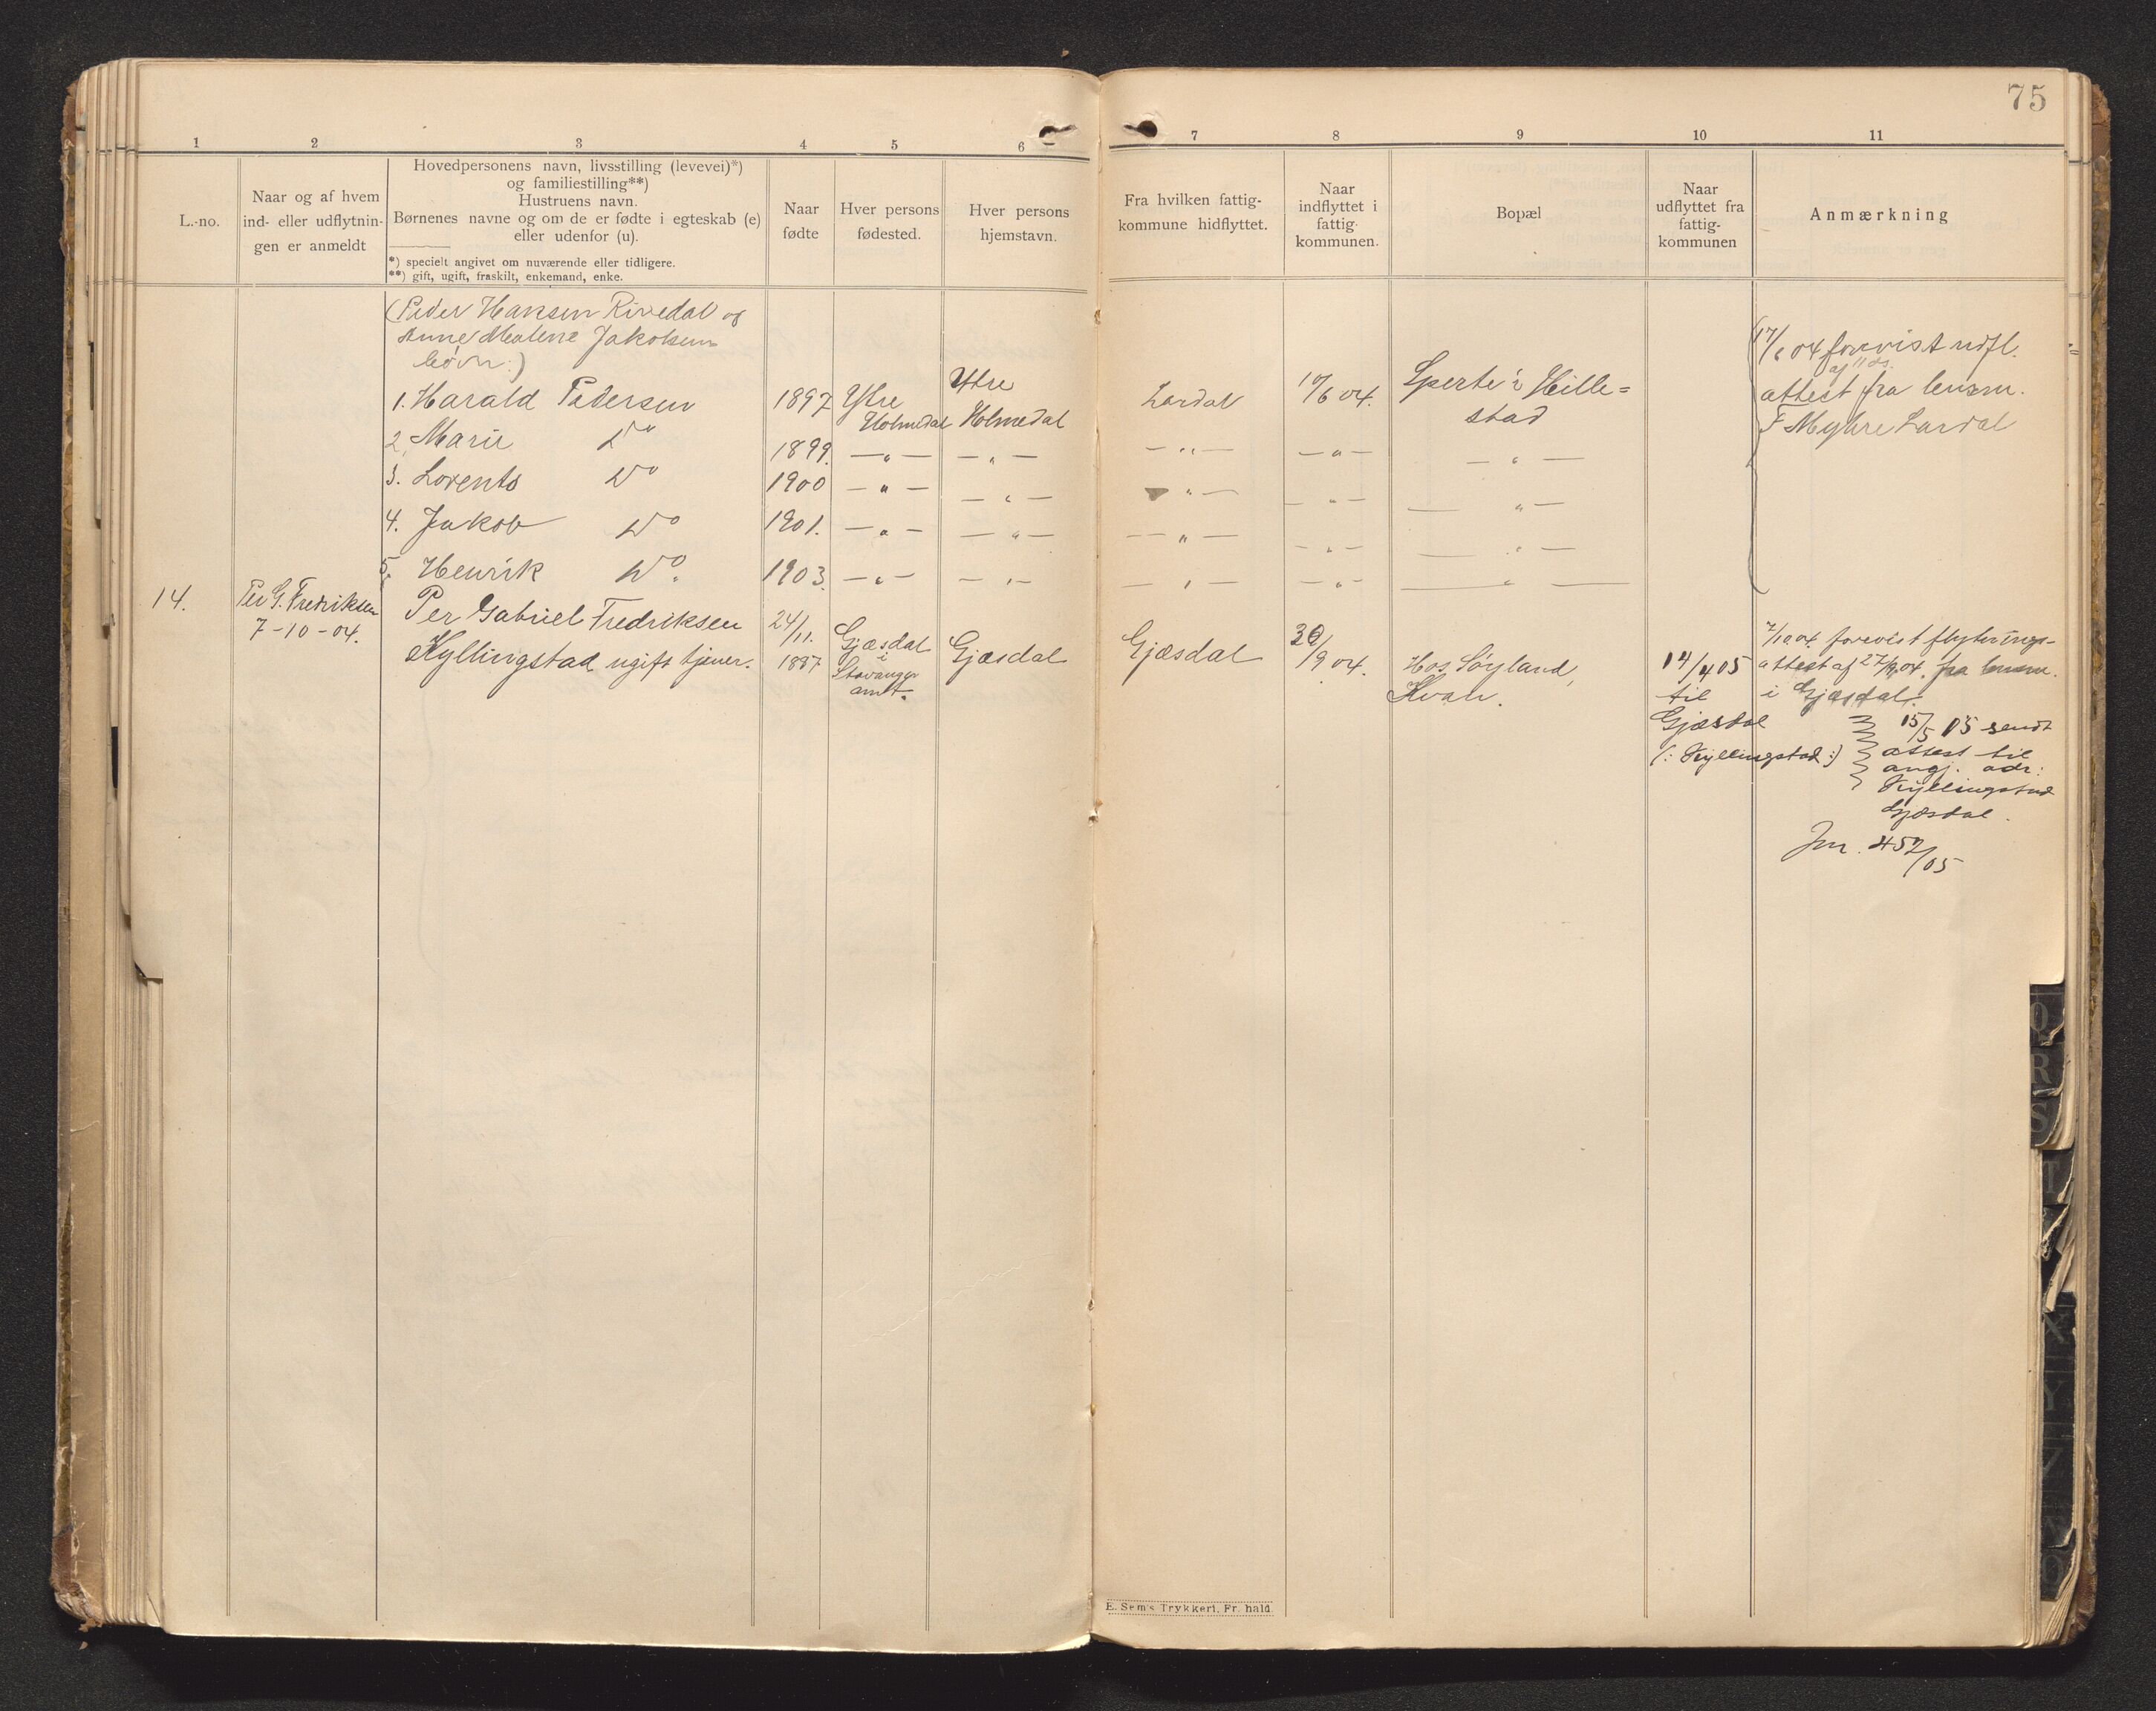 75
1 2 3 4 5 6 7 8 9 10 11
L.-no.
Naar og af hvem
ind- eller udflytnin-
gen er anmeldt
Hovedpersonens navn, livsstilling (levevei)*)
og familiestilling**)
Hustruens navn.
Børnenes navne og om de er fødte i egteskab (e)
eller udenfor (u).
*) specielt angivet om nuværende eller tidligere.
**) gift, ugift, fraskilt, enkemand, enke.
Naar
fødte
Hver persons
fødested.
Hver persons
hjemstavn.
Fra hvilken fattig-
kommune hidflyttet.
Naar
indflyttet i
fattig-
kommunen.
Bopæl
Naar
udflyttet fra
fattig-
kommunen
Anmærkning
(Peder Hansen Rivedal og
Anne Malene Jakobsens
börn:)
1. Harald Pedersen 1897 Ytre Holmedal Ytre Holmedal Lardal 10/6 04.
2. Marie Do 1899. —„— —„— —„— —„— —„—
3. Lorents Do 1900 —„— —„— „— —„— —„—
4. Jakob Do 1901. —„— —„— —„— —„— —„—
5. Henrik Do. 1903. —„— —„— —„— —„— —„—
i Hille=
stad
17/6 04 forevist udfl.
attest fra lensm.
F Myhre Lardal
14.
Per G. Fredriksen
7-10-04.
Per Gabriel Fredriksen
Kyllingstad ugift tjener.
24/11.
1887
Gjæsdal
i
Stavanger
amt.
Gjæsdal
Gjæsdal
30/9 04.
Hos Söyland,
Kvan.
14/4 05
til
Gjæsdal
(: Kyllingstad :)
7/10 04. forevist flytnings-
attest af 27/9 04. fra lensm.
i Gjæsdal.
15/5 05 sendt
attest til
angj. adr:
Kyllingstad
Gjæsdal.
Jnr. 457/05
E. Sem's Trykkeri, Fr. hald.
O
R
S
T
X
Y